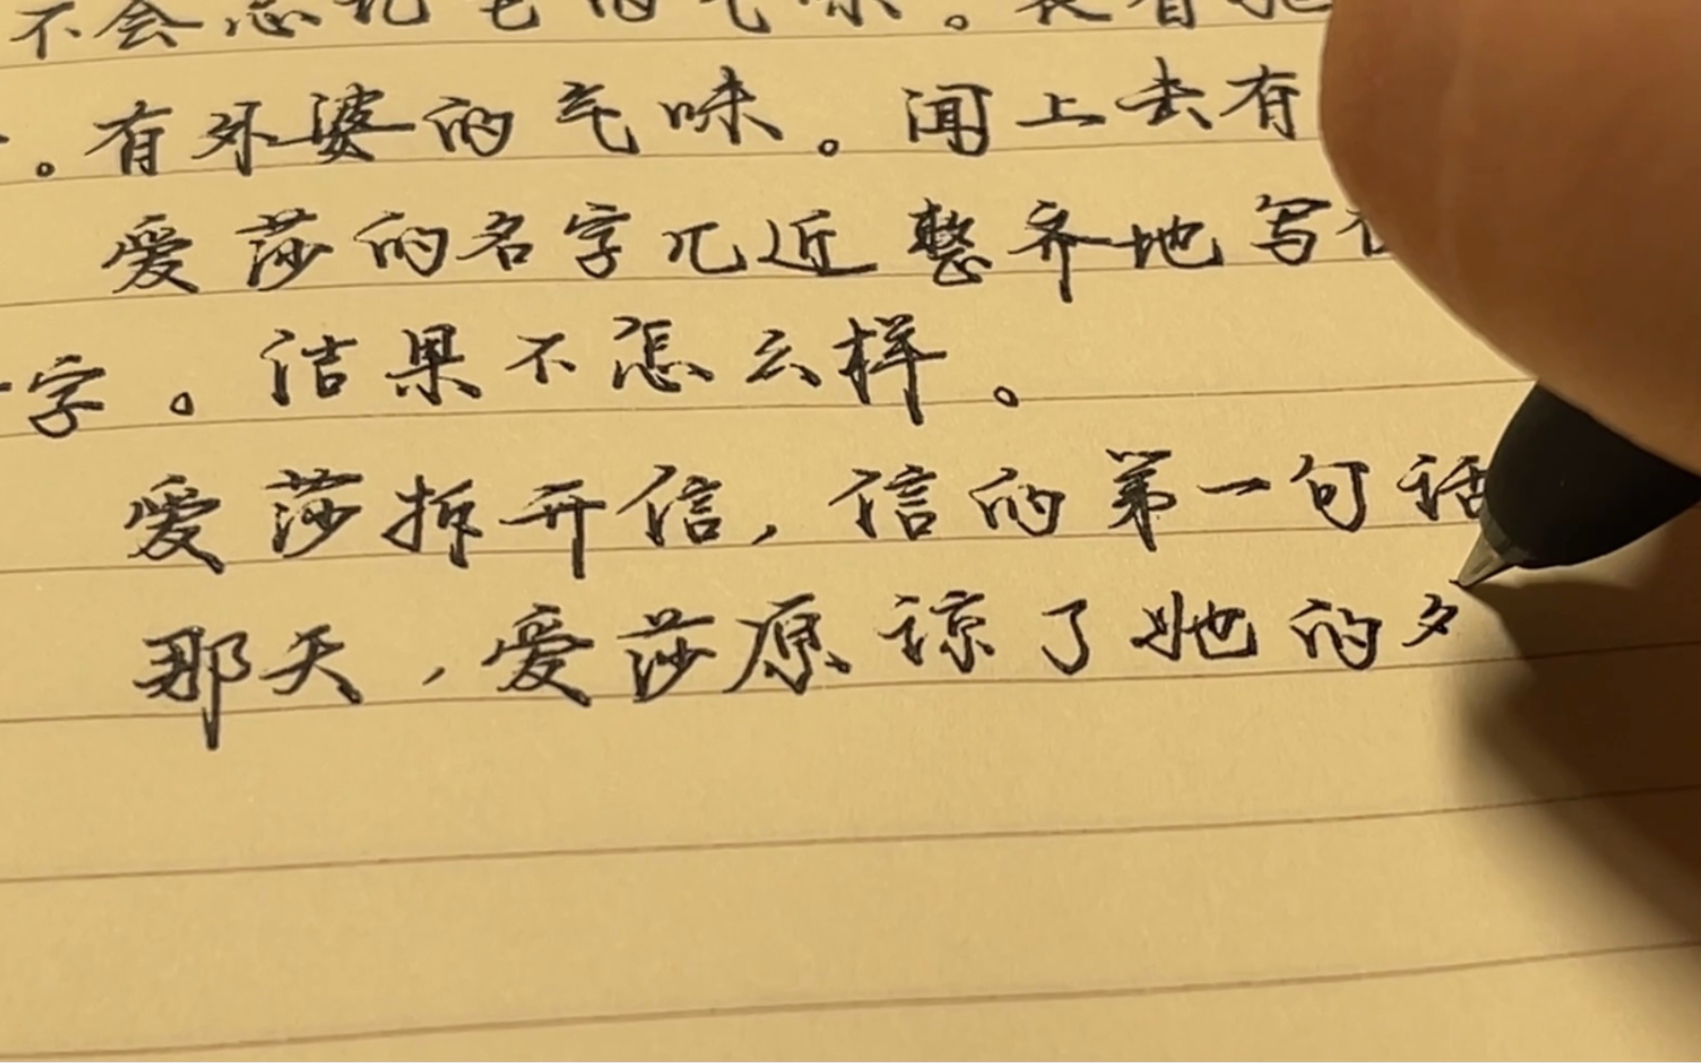 不会忘记它的气味。我看
。有外婆的气味。闻上去有
爱莎的名字几近整齐地写在
字。结果不怎么样。
爱莎拆开信，信的第一句话
那天，爱莎原谅了她的夕